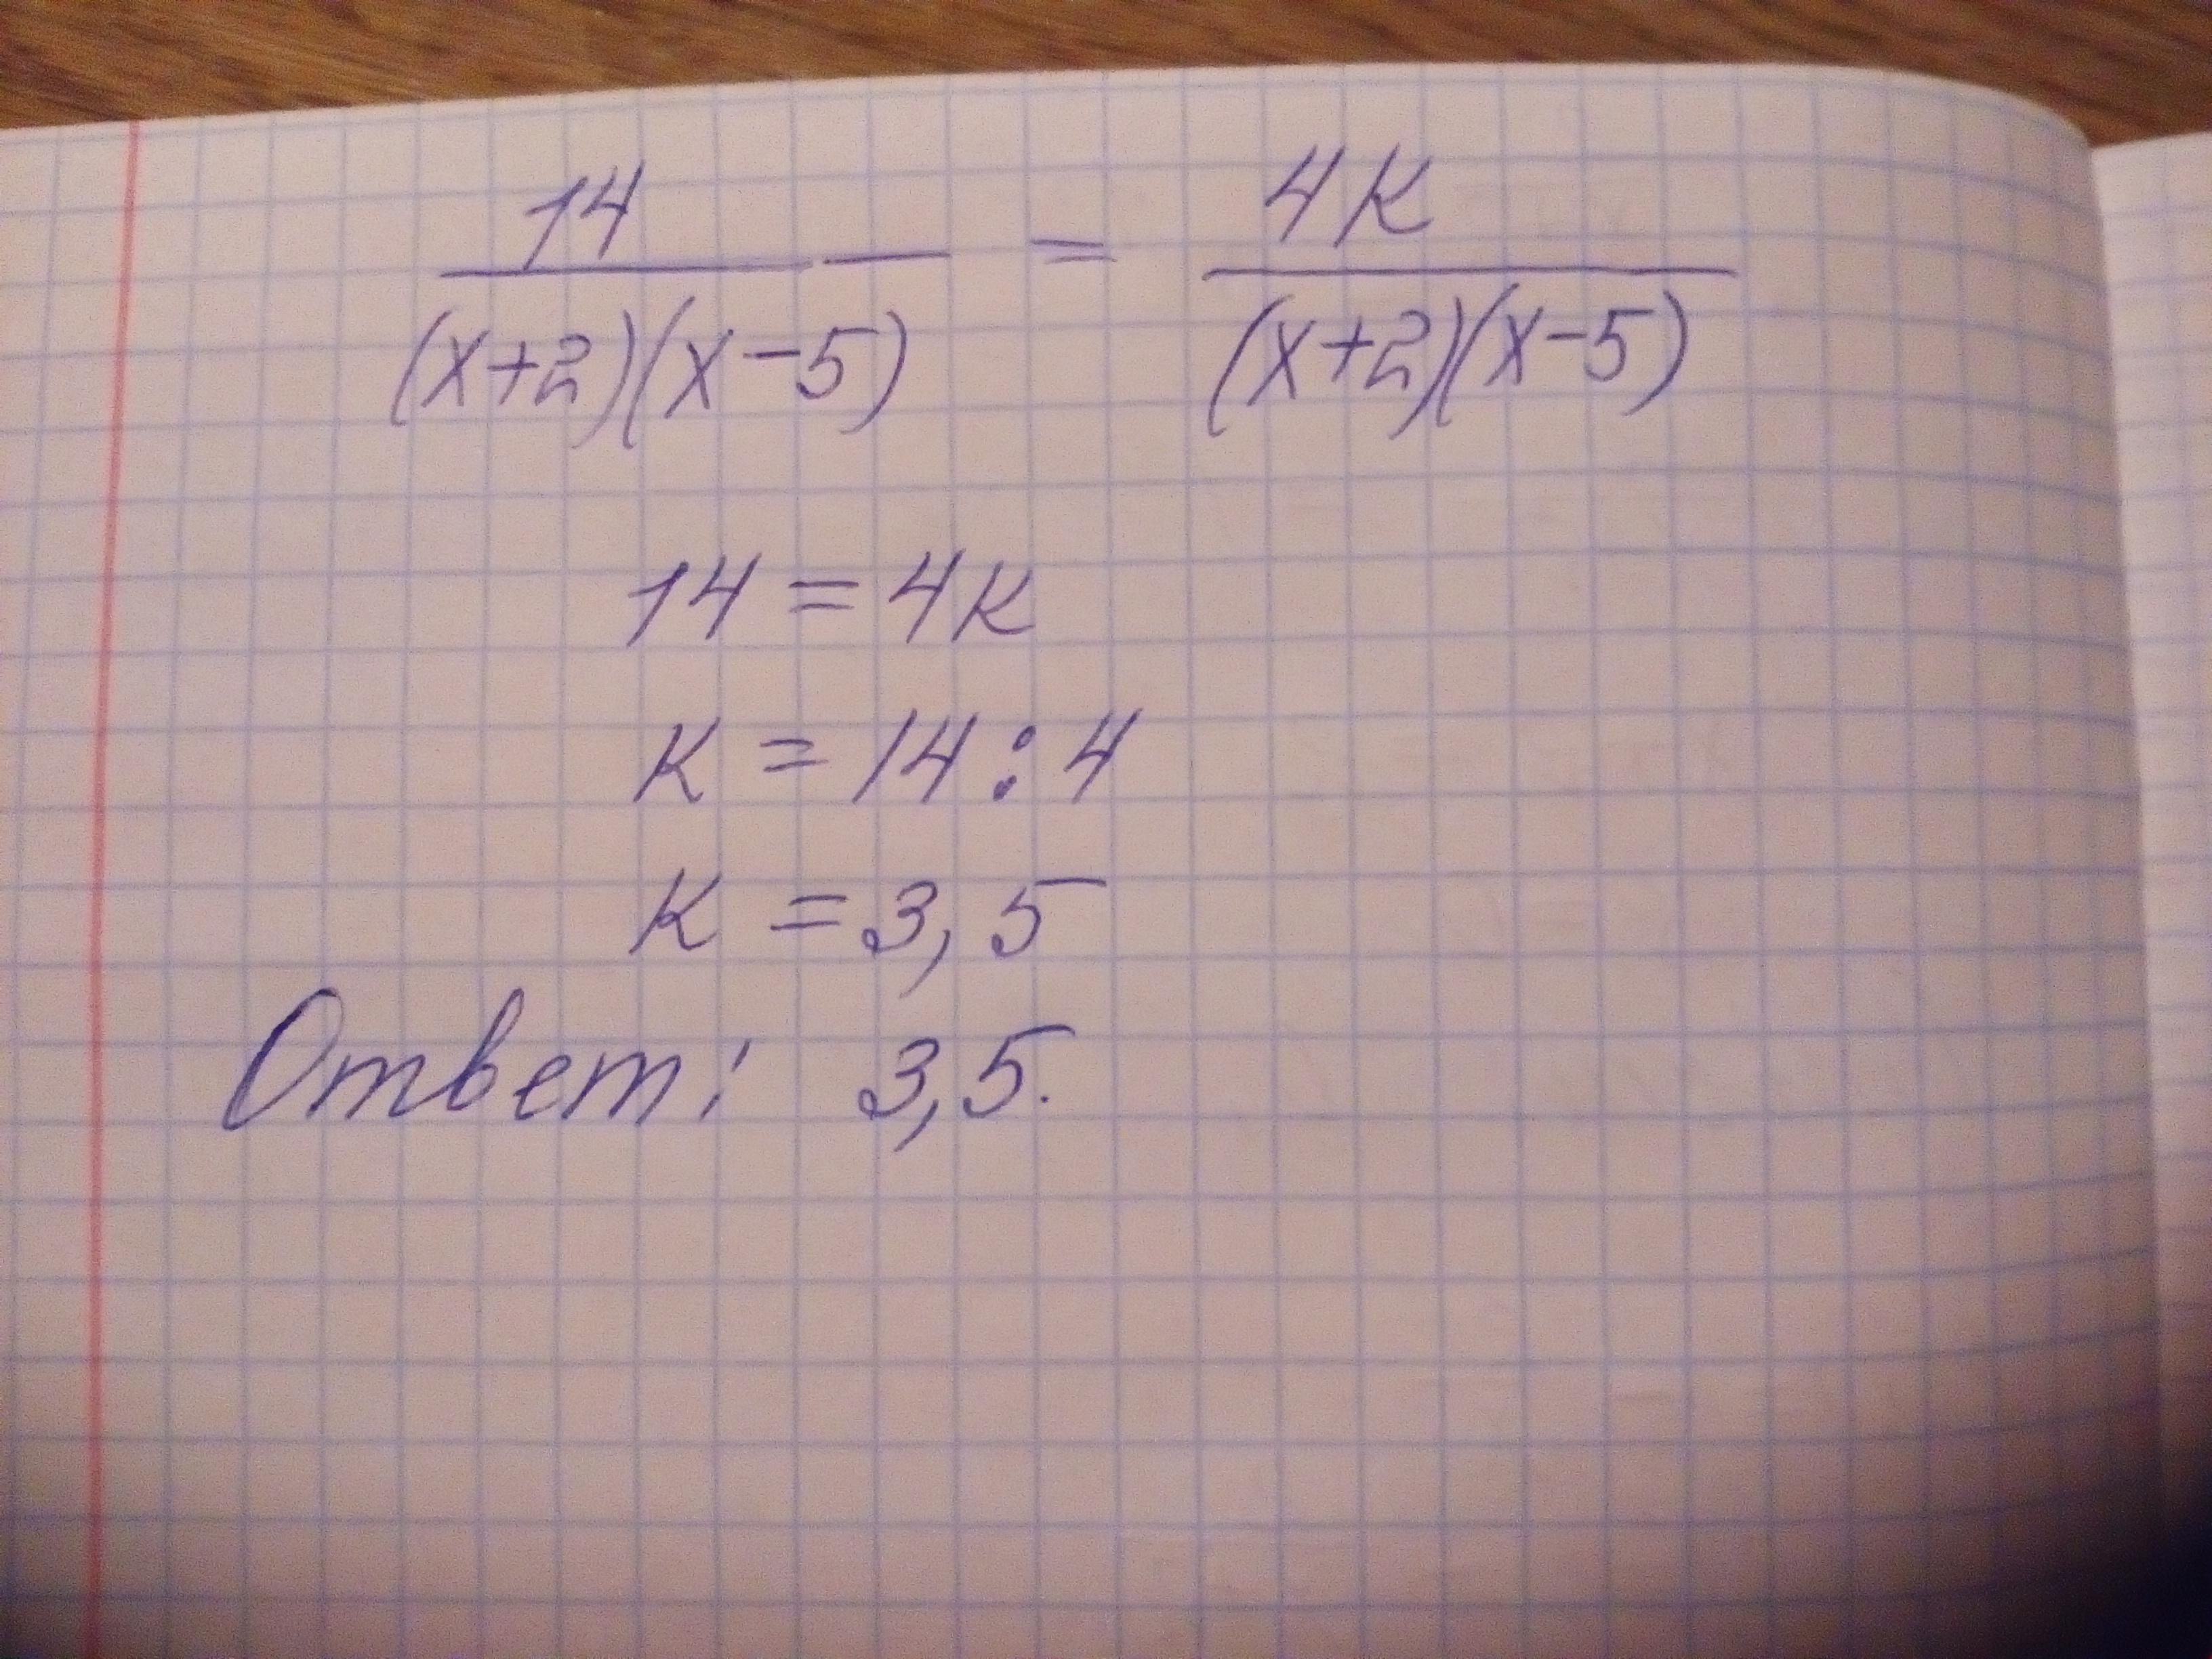 14 / (x+2)(x-5) = 4k / (x+2)(x-5)
14 = 4k
k = 14 : 4
k = 3,5
Ответ: 3,5.